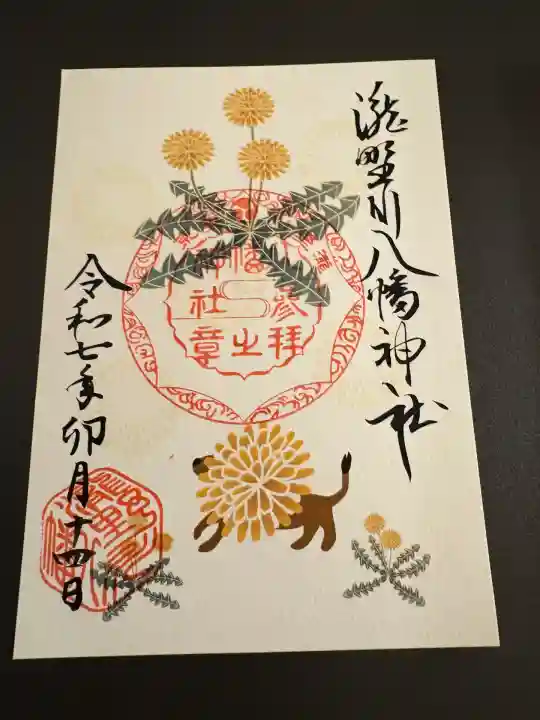 瀧野川八幡神社
参拝之章
社
令和七年卯月十四日